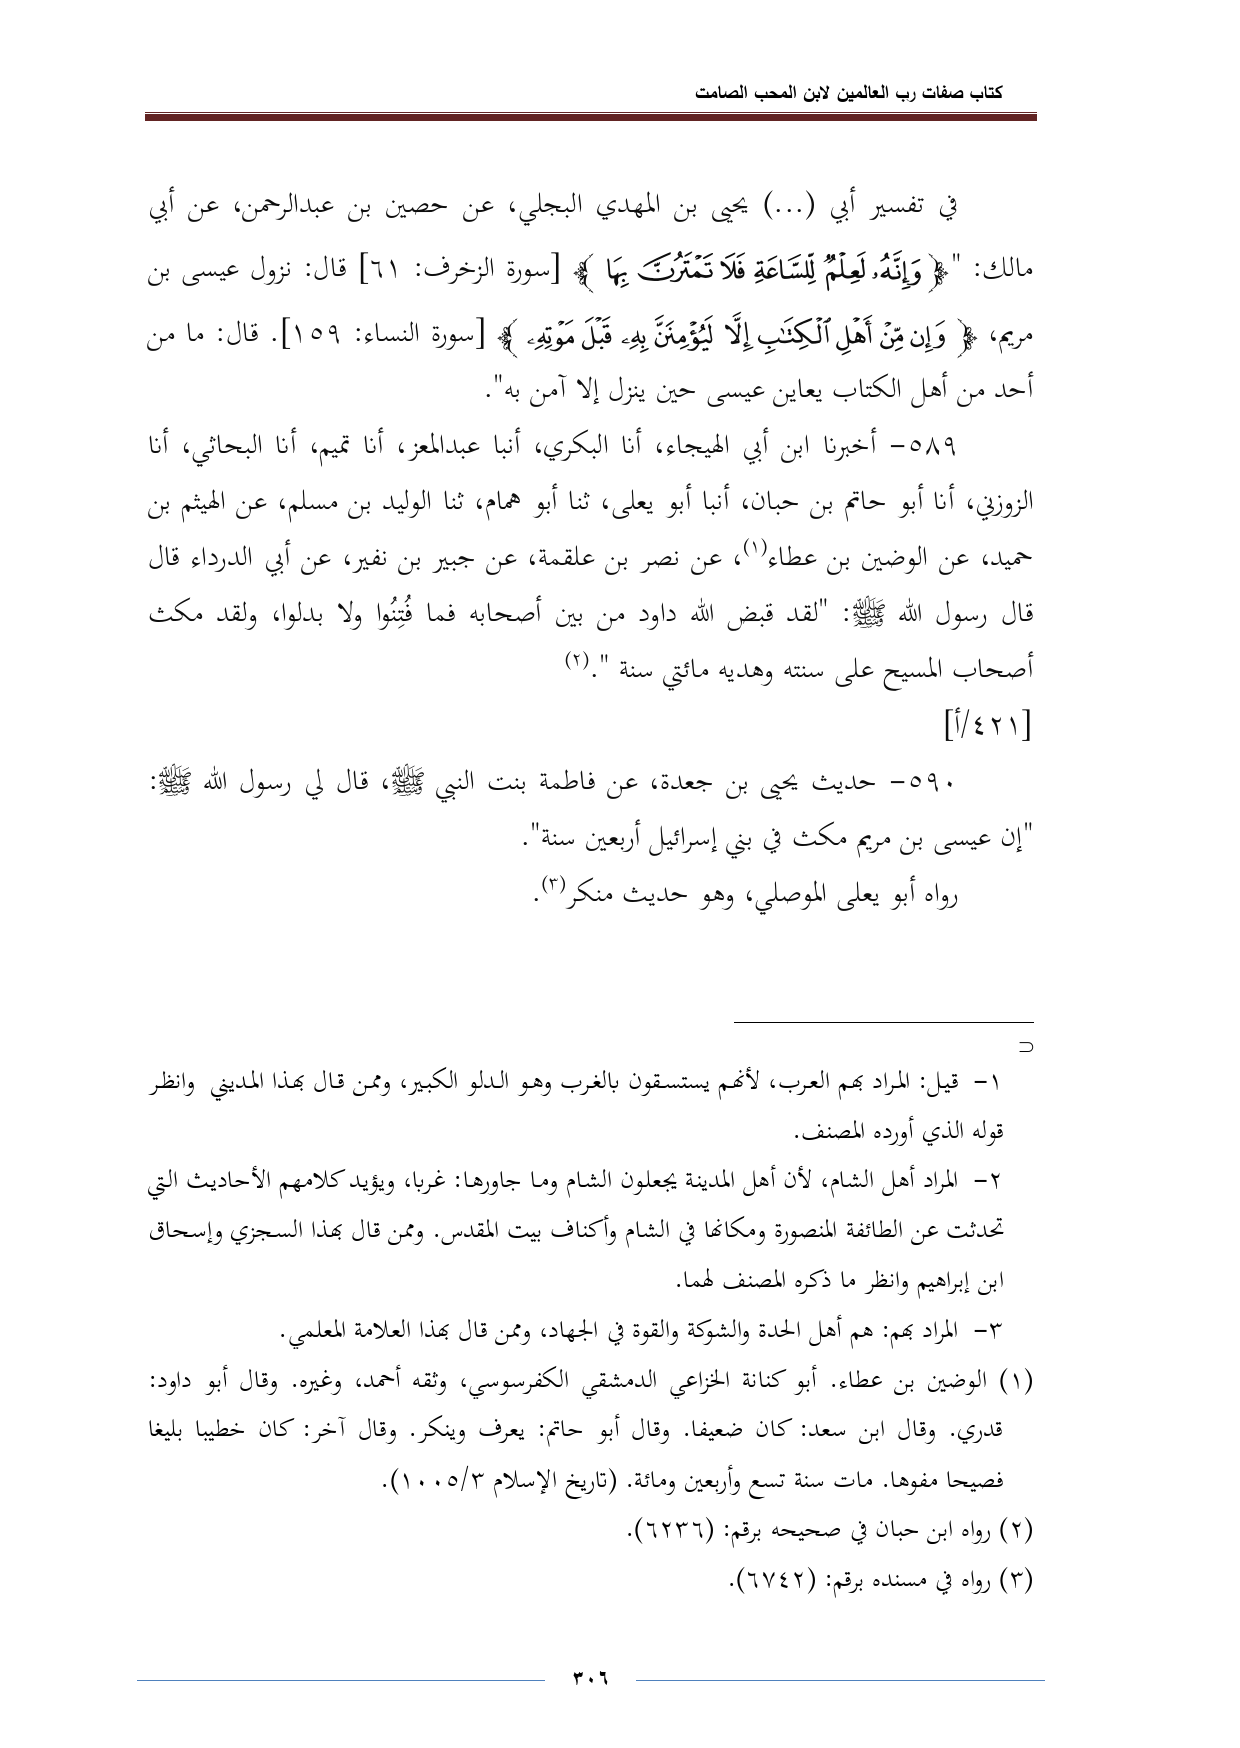 كتاب صفات رب العالمين لابن المحب الصامت
في تفسير أبي (...) يحيى بن المهدي البجلي، عن حصين بن عبدالرحمن، عن أبي
مالك: "﴿ وَإِنَّهُۥ لَعِلْمٌ لِّلسَّاعَةِ فَلَا تَمْتَرُنَّ بِهَا ﴾ [سورة الزخرف: ٦١] قال: نزول عيسى بن
مريم، ﴿ وَإِن مِّنْ أَهْلِ ٱلْكِتَٰبِ إِلَّا لَيُؤْمِنَنَّ بِهِۦ قَبْلَ مَوْتِهِۦ ﴾ [سورة النساء: ١٥٩]. قال: ما من
أحد من أهل الكتاب يعاين عيسى حين ينزل إلا آمن به".
٥٨٩- أخبرنا ابن أبي الهيجاء، أنا البكري، أنبا عبدالمعز، أنا تميم، أنا البحاثي، أنا
الزوزني، أنا أبو حاتم بن حبان، أنبا أبو يعلى، ثنا أبو همام، ثنا الوليد بن مسلم، عن الهيثم بن
حميد، عن الوضين بن عطاء(١)، عن نصر بن علقمة، عن جبير بن نفير، عن أبي الدرداء قال
قال رسول الله ﷺ: "لقد قبض الله داود من بين أصحابه فما فُتِنُوا ولا بدلوا، ولقد مكث
أصحاب المسيح على سنته وهديه مائتي سنة ".(٢)
[٤٢١/أ]
٥٩٠- حديث يحيى بن جعدة، عن فاطمة بنت النبي ﷺ، قال لي رسول الله ﷺ:
"إن عيسى بن مريم مكث في بني إسرائيل أربعين سنة".
رواه أبو يعلى الموصلي، وهو حديث منكر(٣).
⊃
١- قيل: المراد بهم العرب، لأنهم يستسقون بالغرب وهو الدلو الكبير، وممن قال بهذا المديني وانظر
قوله الذي أورده المصنف.
٢- المراد أهل الشام، لأن أهل المدينة يجعلون الشام وما جاورها: غربا، ويؤيد كلامهم الأحاديث التي
تحدثت عن الطائفة المنصورة ومكانها في الشام وأكناف بيت المقدس. وممن قال بهذا السجزي وإسحاق
ابن إبراهيم وانظر ما ذكره المصنف لهما.
٣- المراد بهم: هم أهل الحدة والشوكة والقوة في الجهاد، وممن قال بهذا العلامة المعلمي.
(١) الوضين بن عطاء. أبو كنانة الخزاعي الدمشقي الكفرسوسي، وثقه أحمد، وغيره. وقال أبو داود:
قدري. وقال ابن سعد: كان ضعيفا. وقال أبو حاتم: يعرف وينكر. وقال آخر: كان خطيبا بليغا
فصيحا مفوها. مات سنة تسع وأربعين ومائة. (تاريخ الإسلام ١٠٠٥/٣).
(٢) رواه ابن حبان في صحيحه برقم: (٦٢٣٦).
(٣) رواه في مسنده برقم: (٦٧٤٢).
٣٠٦